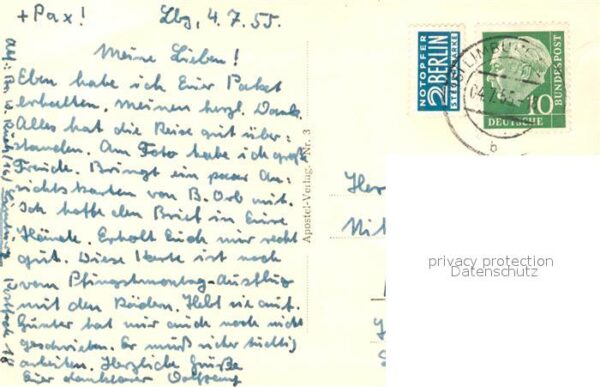 + Pax! Lbg, 4.7.55.
Meine Lieben!
Eben habe ich Euer Paket
erhalten. Meinen herzl. Dank.
Alles hat die Reise gut über-
standen. Am Foto habe ich große
Freude. Bringt ein paar An-
sichtskarten von B. Orb mit.
Ich hoffe den Brief in Eure
Hände. Erholt Euch nur recht
gut. Diese Karte ist noch
vom Pfingstmontag-Ausflug
mit den Rädern. Hebt sie auf.
Günter hat mir auch noch nicht
geschrieben. Er muß sicher tüchtig
arbeiten. Herzliche Grüße
Euer dankbarer Wolfgang
Limburg Postfach 18
Apostel-Verlag. Nr. 3
NOTOPFER
2 BERLIN
STEUERMARKE
LIMBURG
04.7.55
b
10
DEUTSCHE
BUNDESPOST
Her
Mit
privacy protection
Datenschutz